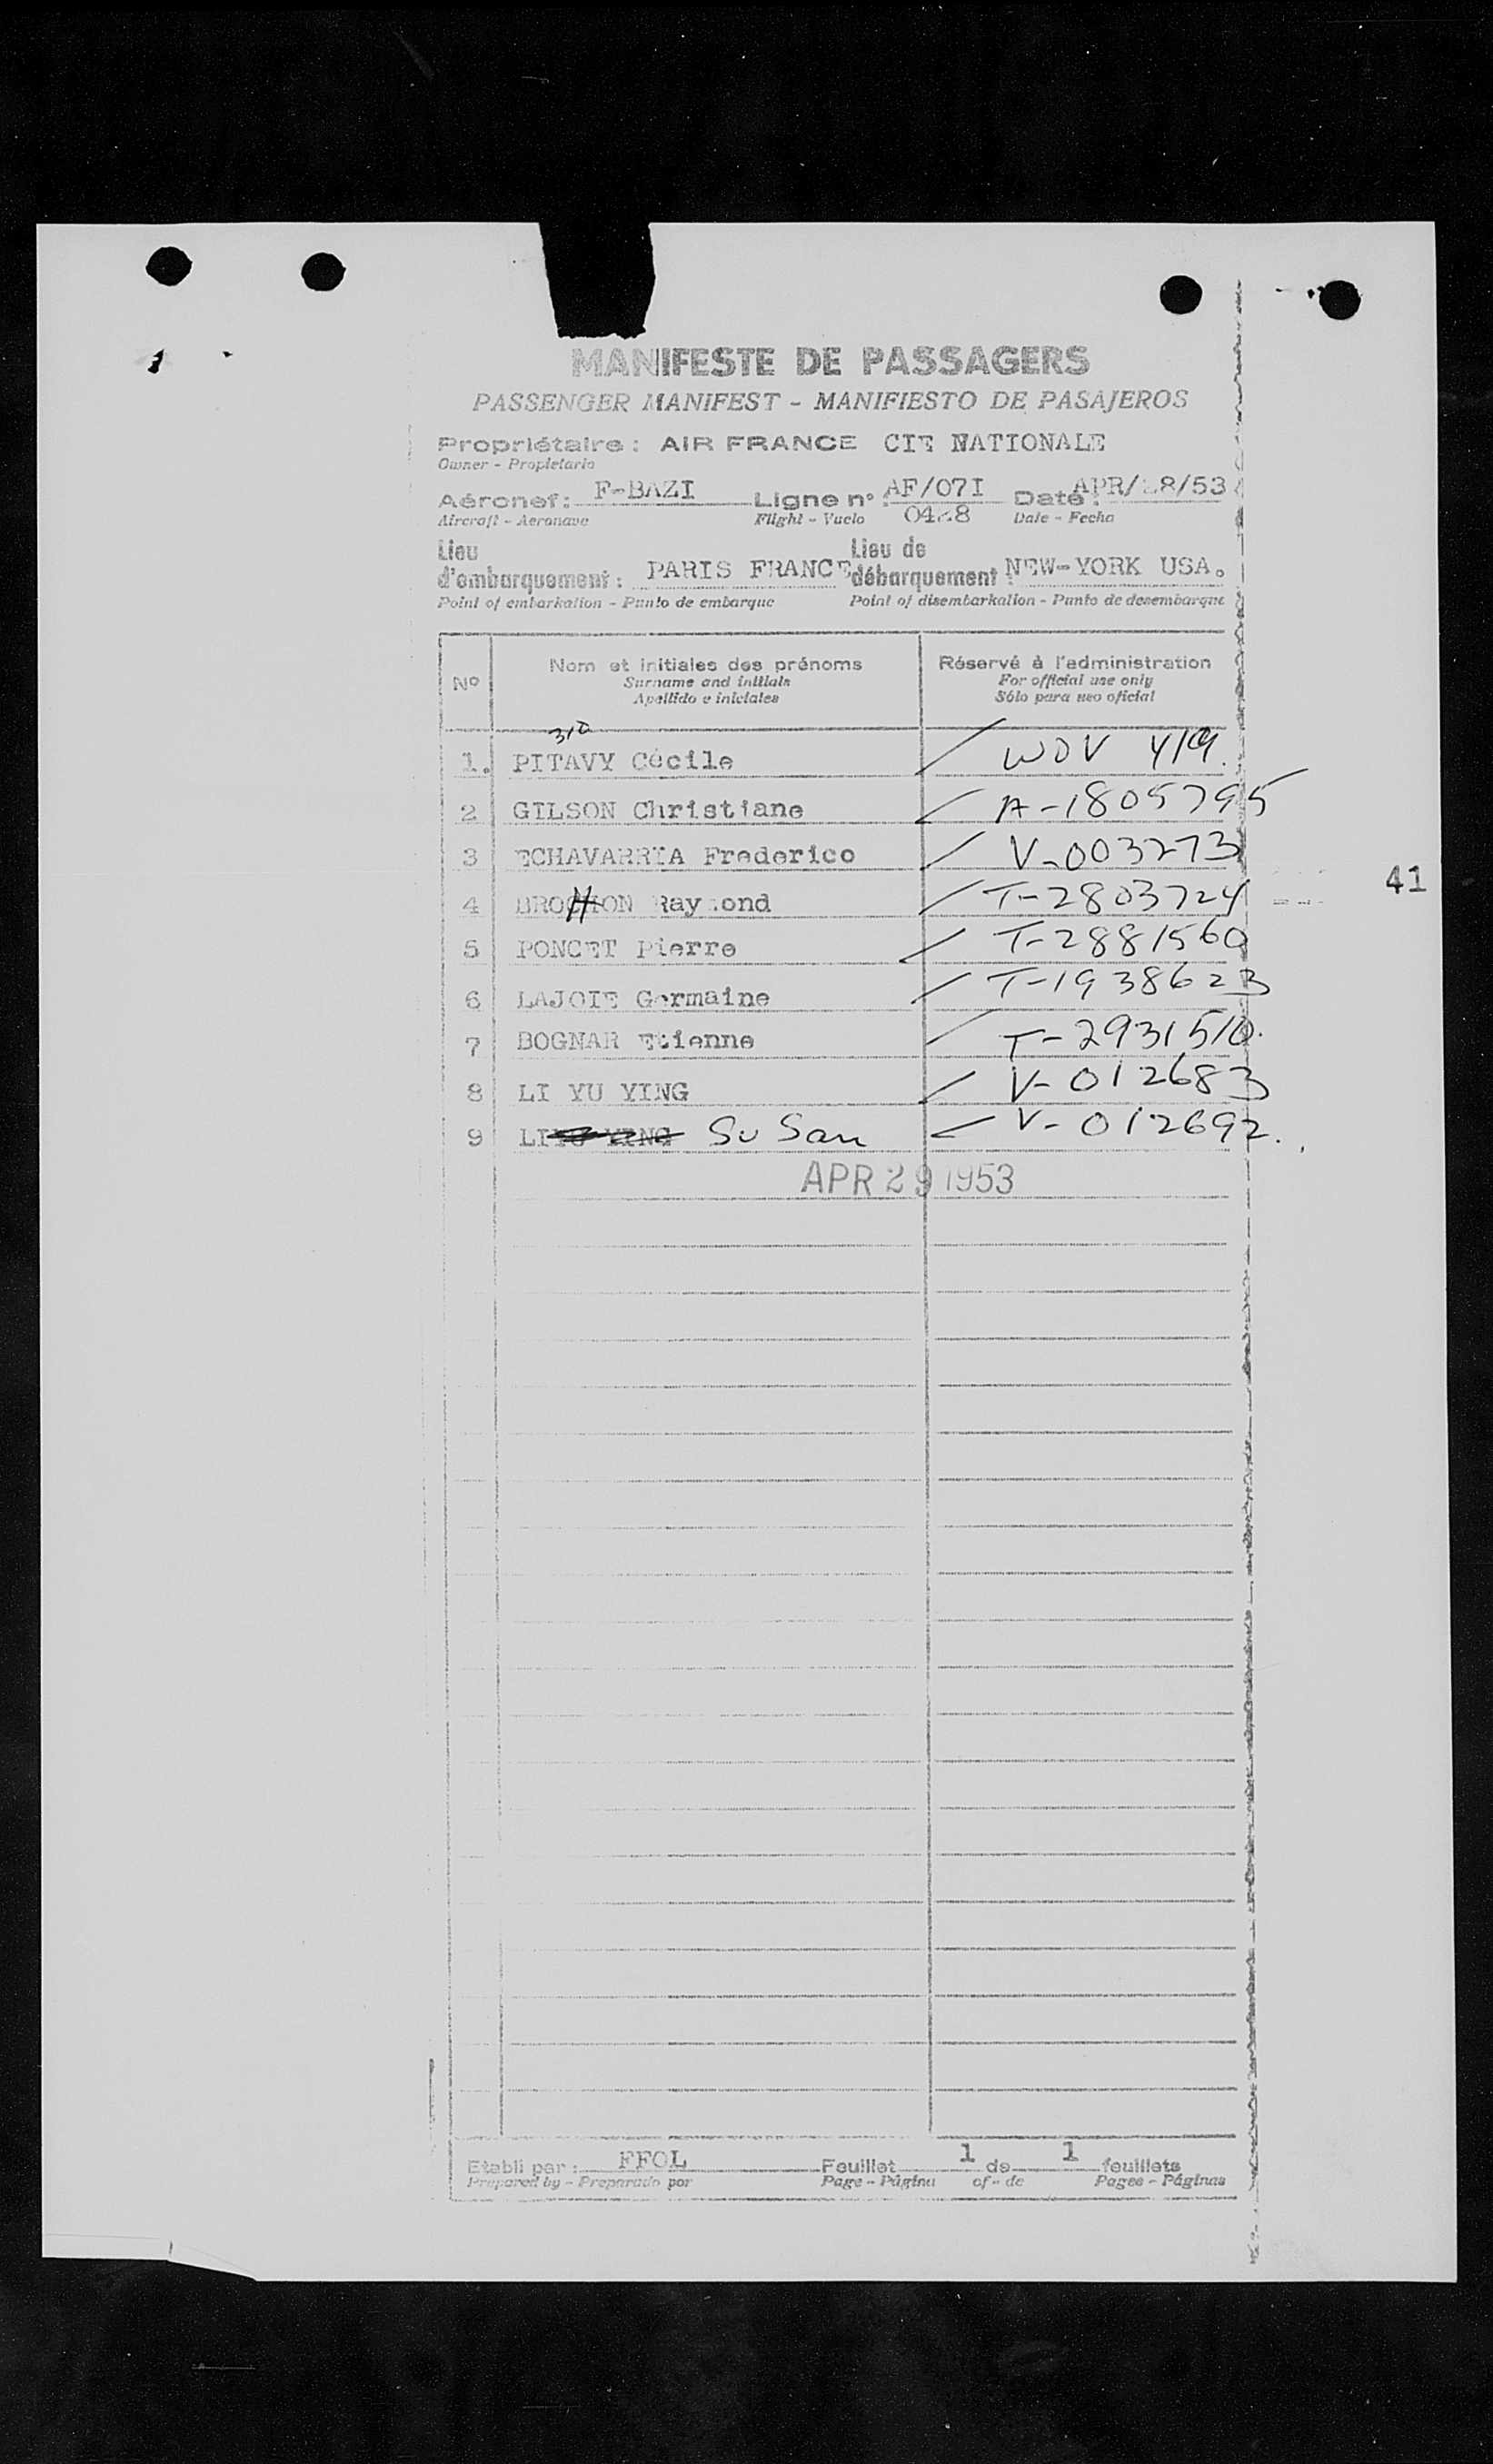 MANIFESTE DE PASSAGERS
PASSENGER MANIFEST - MANIFIESTO DE PASAJEROS
Propriétaire : AIR FRANCE CIE NATIONALE
Owner - Propietario
Aéronef : F-BAZI Ligne n° : AF/07I Date : APR/28/53
Aircraft - Aeronave Flight - Vuelo 0428 Date - Fecha
Lieu d'embarquement : PARIS FRANCE Lieu de débarquement : NEW-YORK USA.
Point of embarkation - Punto de embarque Point of disembarkation - Punto de desembarque
N° Nom et initiales des prénoms Réservé à l'administration
Surname and initials For official use only
Apellido e iniciales Sólo para uso oficial
1. PITAVY Cécile WDV 419.
2 GILSON Christiane A-1805795
3 ECHAVARRIA Frederico V-003273
4 BROCHON Raymond T-2803724
5 PONCET Pierre T-2881560
6 LAJOIE Germaine T-1938623
7 BOGNAR Etienne T-2931510.
8 LI YU YING V-012683
9 LI YU YING Su San V-012692.
APR 29 1953
41
Etabli par : FFOL Feuillet 1 de 1 feuillets
Prepared by - Preparado por Page - Página of - de Pages - Páginas